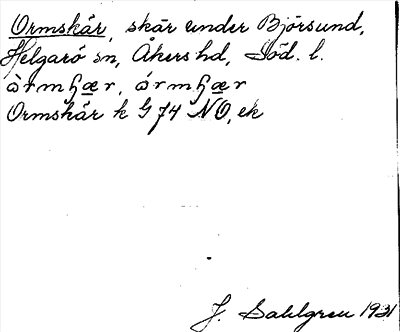 Ormskär, skär under Björsund,
Helgarö sn, Åkers hd, Söd. l.
Ormskär k G 74 NO, ek
J. Sahlgren 1931